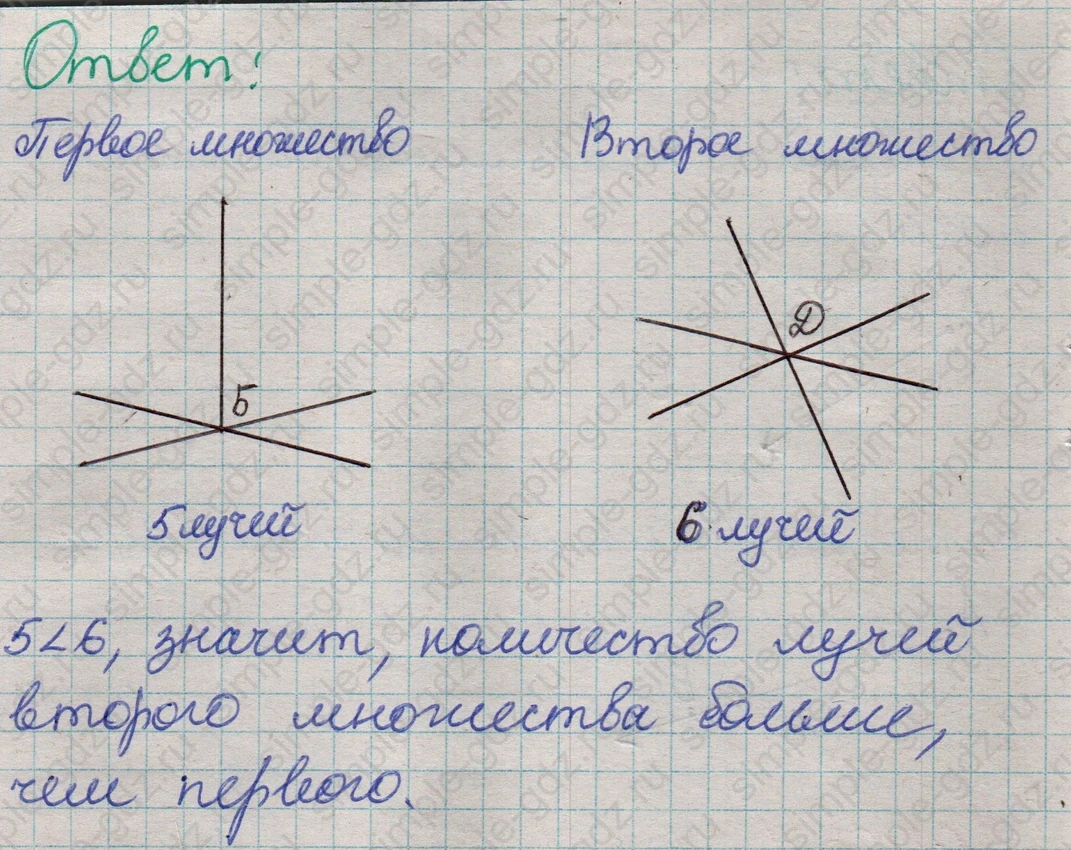 Ответ:
Первое множество Второе множество
Б Д
5 лучий 6 лучий
5<6, значит, количество лучий
второго множества больше,
чем первого.
simple-gdz.ru